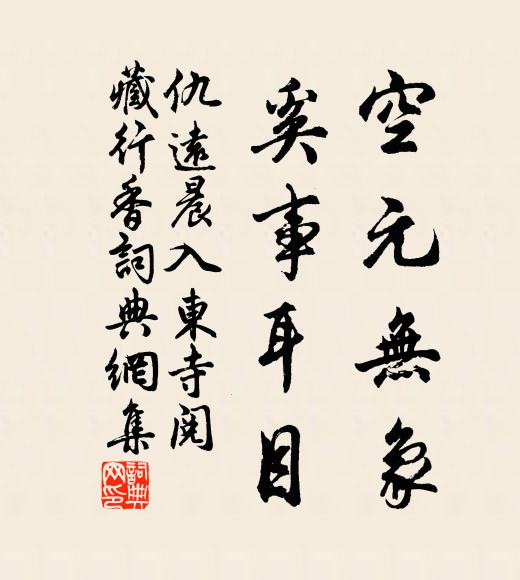 空元無象
奚事耳目
仇遠晨入東寺閱
藏行香詞典網集
詞典網印